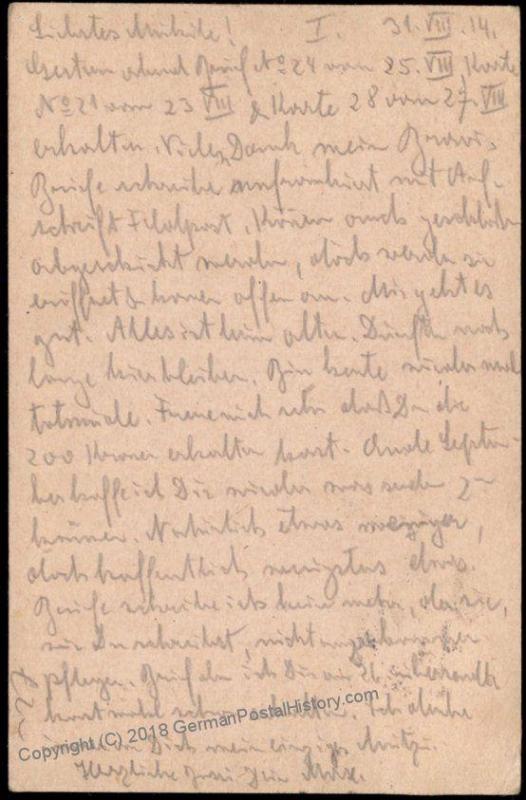 Liebstes Mutzile! I. 31.VIII.14.
Gestern abend Brief No 24 vom 25.VIII, Karte
No 21 vom 23 VIII & Karte 28 vom 27.VIII
erhalten. Vielen Dank mein Bravi.
Briefe schreibe unfrankiert mit Auf-
schrift Feldpost. Können auch geschlossen
abgeschickt werden, doch werden sie
eröffnet & kommen offen an. Mir geht es
gut. Alles ist beim alten. Dürfte noch
lange hierbleiben. Bin heute wieder mal
totmüde. Freue mich sehr daß Du die
200 Kronen erhalten hast. Ende Septem-
ber hoffe ich Dir wieder was senden zu
können. Natürlich etwas weniger,
doch hoffentlich wenigstens etwas.
Briefe schreibe ich keine mehr, da sie,
wie Du schreibst, nicht anzukommen
pflegen. Brief den ich Dir am 26.
Ich denke
Dich mein einziges Mutzi.
Herzliche Dein Max.
Copyright (C) 2018 GermanPostalHistory.com